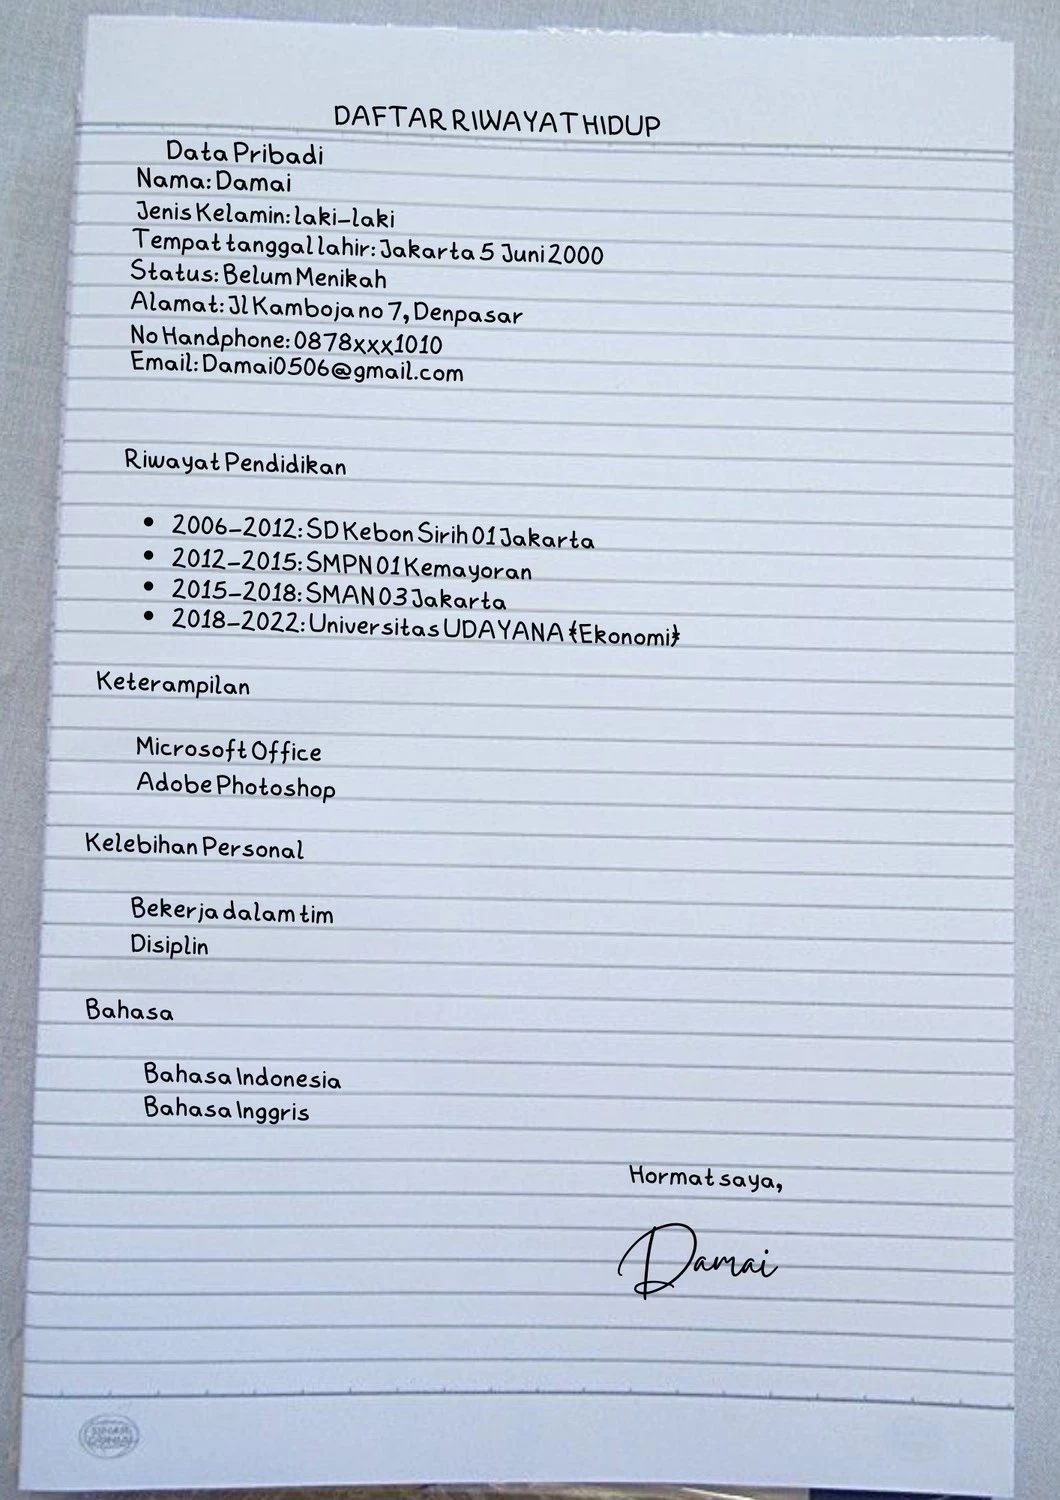 DAFTAR RIWAYAT HIDUP
Data Pribadi
Nama: Damai
Jenis Kelamin: laki-laki
Tempat tanggal lahir: Jakarta 5 Juni 2000
Status: Belum Menikah
Alamat: Jl Kamboja no 7, Denpasar
No Handphone: 0878xxx1010
Email: Damai0506@gmail.com
Riwayat Pendidikan
• 2006-2012: SD Kebon Sirih 01 Jakarta
• 2012-2015: SMPN 01 Kemayoran
• 2015-2018: SMAN 03 Jakarta
• 2018-2022: Universitas UDAYANA {Ekonomi}
Keterampilan
Microsoft Office
Adobe Photoshop
Kelebihan Personal
Bekerja dalam tim
Disiplin
Bahasa
Bahasa Indonesia
Bahasa Inggris
Hormat saya,
Damai